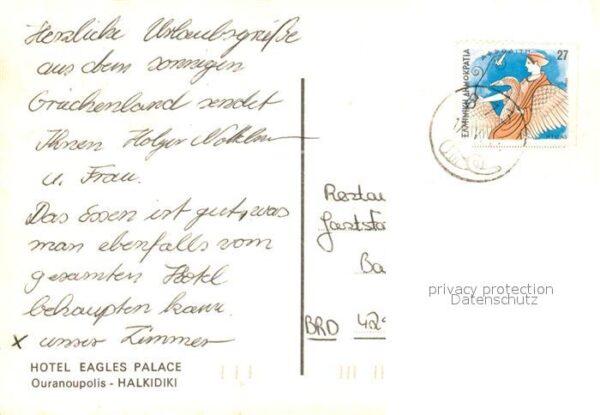 Herzliche Urlaubsgrüße
aus dem sonnigen
Griechenland sendet
Ihnen Holger
u. Frau.
Das Essen ist gut, was
man ebenfalls vom
gesamten Hotel
behaupten kann.
x unser Zimmer
HOTEL EAGLES PALACE
Ouranoupolis - HALKIDIKI
27
ΕΛΛΗΝΙΚΗ ΔΗΜΟΚΡΑΤΙΑ
Restau
Gaststä
Ba
BRD 42
privacy protection
Datenschutz